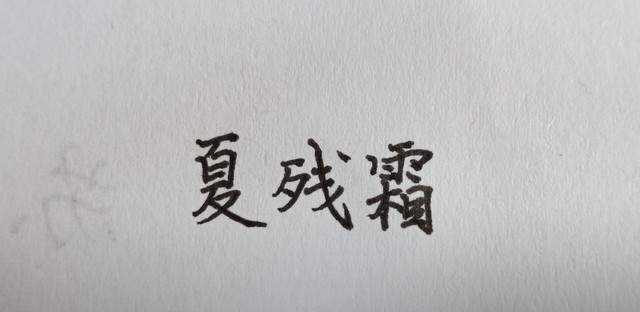 夏残霜